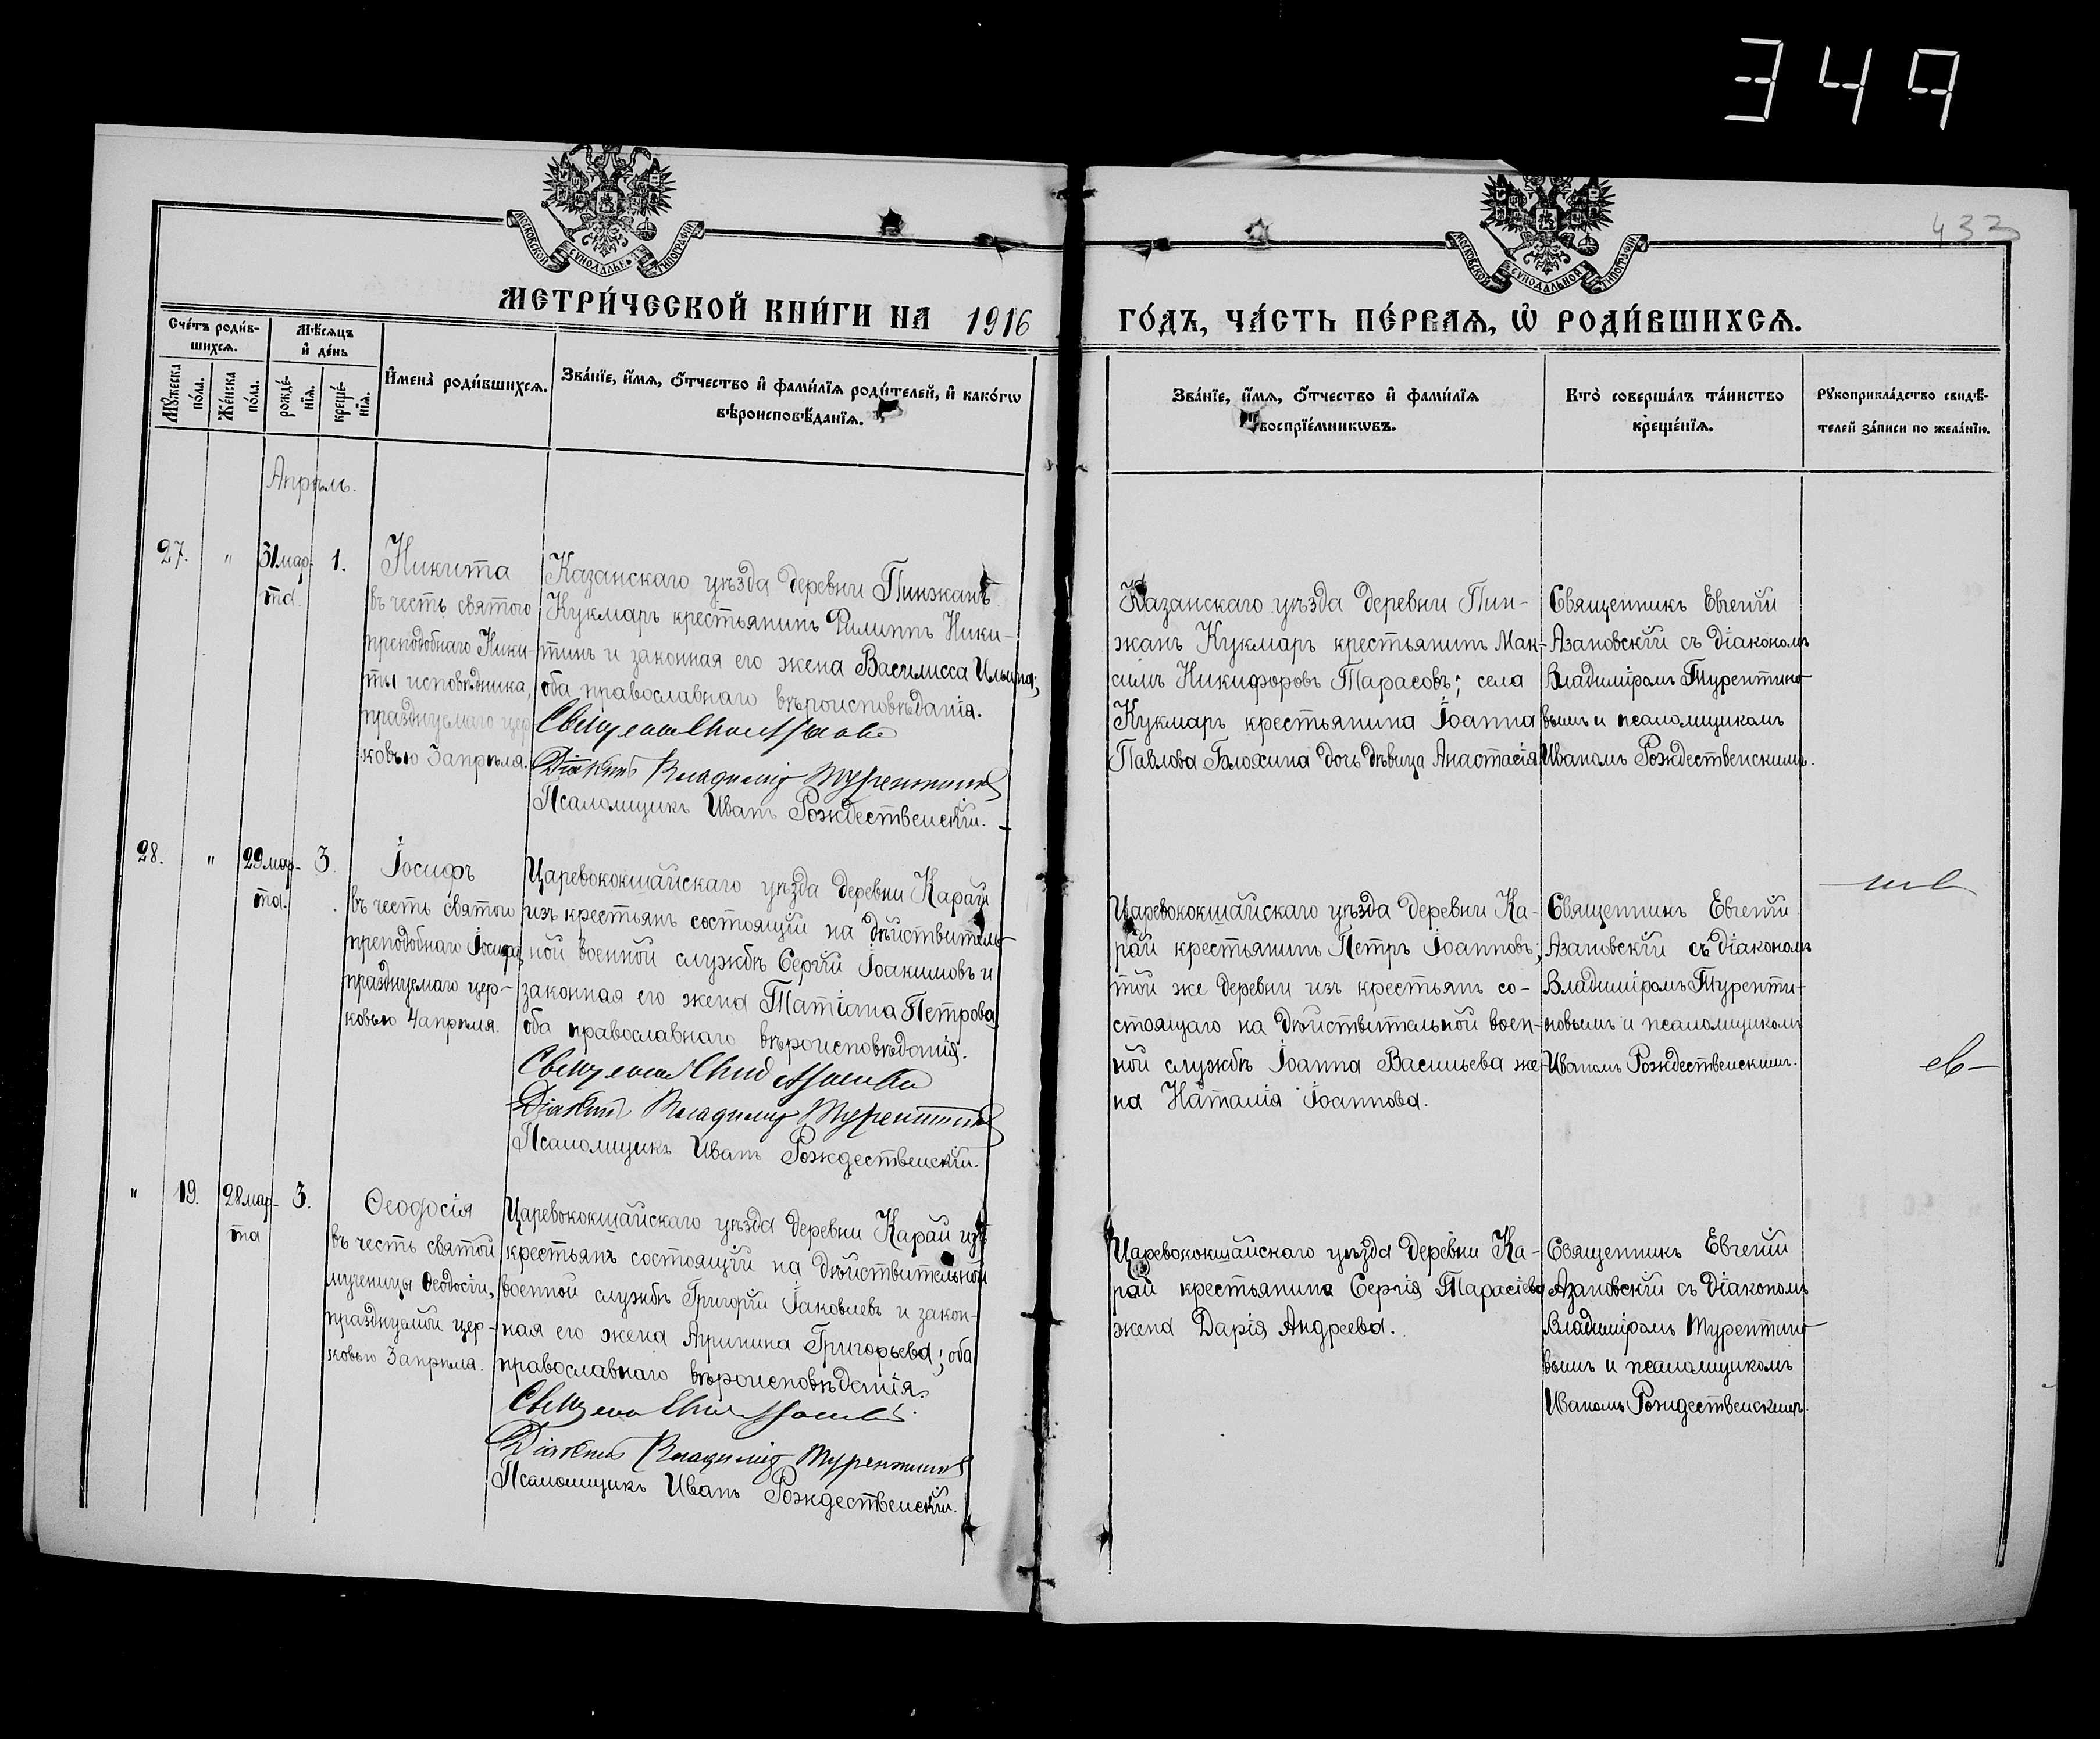 349
433
МОСКОВСКОЙ СѴНОДАЛЬНОЙ ТИПОГРАФІИ
МОСКОВСКОЙ СѴНОДАЛЬНОЙ ТИПОГРАФІИ
МЕТРИ́ЧЕСКОЙ КНИ́ГИ НА 1916 ГО́ДЪ, ЧА́СТЬ ПЕ́РВАѦ, Ѡ҆ РОДИ́ВШИХСѦ.
Сче́тъ роди́в-
шихсѧ.
Мꙋ́жеска
по́ла.
Же́нска
по́ла.
Мѣ́сѧцъ
и҆ де́нь
рожде́-
нїѧ.
креще́-
нїѧ.
И҆мена̀ роди́вшихсѧ.
Зва́нїе, и҆́мѧ, ѻ҆́тчество и҆ фами́лїѧ роди́телей, и҆ како́гѡ
вѣроисповѣ́данїѧ.
Зва́нїе, и҆́мѧ, ѻ҆́тчество и҆ фами́лїѧ
воспрїе́мникѡвъ.
Кто̀ соверша́лъ та́инство
креще́нїѧ.
Рꙋкоприкла́дство свидѣ́-
телей за́писи по жела́нїю.
Апрѣль.
27.
"
31 мар-
та.
1.
Никита
въ честь святого
преподобнаго Ники-
ты исповѣдника,
празднуемаго цер
ковью 3 апрѣля.
Казанскаго уѣзда деревни Пинжанъ
Кукмаръ крестьянинъ Филиппъ Ники-
тинъ и законная его жена Василисса Ильина;
оба православнаго вѣроисповѣданія.
Діаконъ Владиміръ Турентиновъ
Псаломщикъ Иванъ Рождественскій.
Казанскаго уѣзда деревни Пин-
жанъ Кукмаръ крестьянинъ Мак-
симъ Никифоровъ Тарасовъ; села
Кукмаръ крестьянина Іоанна
Павлова Блохина дочь дѣвица Анастасія
Священникъ Евгеній
Азановскій съ діакономъ
Владиміромъ Турентино-
вымъ и псаломщикомъ
Иваномъ Рождественскимъ.
28.
"
29 мар-
та.
3.
Іосифъ
въ честь святого
преподобнаго Іосифа,
празднуемаго цер-
ковью 4 апрѣля.
Царевококшайскаго уѣзда деревни Карай
изъ крестьянъ состоящій на дѣйствитель-
ной военной службѣ Сергій Іоакимовъ и
законная его жена Татіана Петрова
оба православнаго вѣроисповѣданія.
Діаконъ Владиміръ Турентиновъ
Псаломщикъ Иванъ Рождественскій.
Царевококшайскаго уѣзда деревни Ка-
рай крестьянинъ Петръ Іоанновъ;
той же деревни изъ крестьянъ со-
стоящаго на дѣйствительной воен-
ной службѣ Іоанна Васильева же-
на Наталія Іоаннова.
Священникъ Евгеній
Азановскій съ діакономъ
Владиміромъ Туренти-
новымъ и псаломщикомъ
Иваномъ Рождественскимъ.
"
19.
28 мар-
та
3.
Ѳеодосія
въ честь святой
мученицы Ѳеодосіи,
празднуемой цер-
ковью 3 апрѣля.
Царевококшайскаго уѣзда деревни Карай изъ
крестьянъ состоящій на дѣйствительной
военной службѣ Григорій Іаковлевъ и закон-
ная его жена Агрипина Григорьева; оба
православнаго вѣроисповѣданія.
Діаконъ Владиміръ Турентиновъ
Псаломщикъ Иванъ Рождественскій.
Царевококшайскаго уѣзда деревни Ка-
рай крестьянина Сергія Тарасіева
жена Дарія Андреева.
Священникъ Евгеній
Азановскій съ діакономъ
Владиміромъ Турентино-
вымъ и псаломщикомъ
Иваномъ Рождественскимъ.